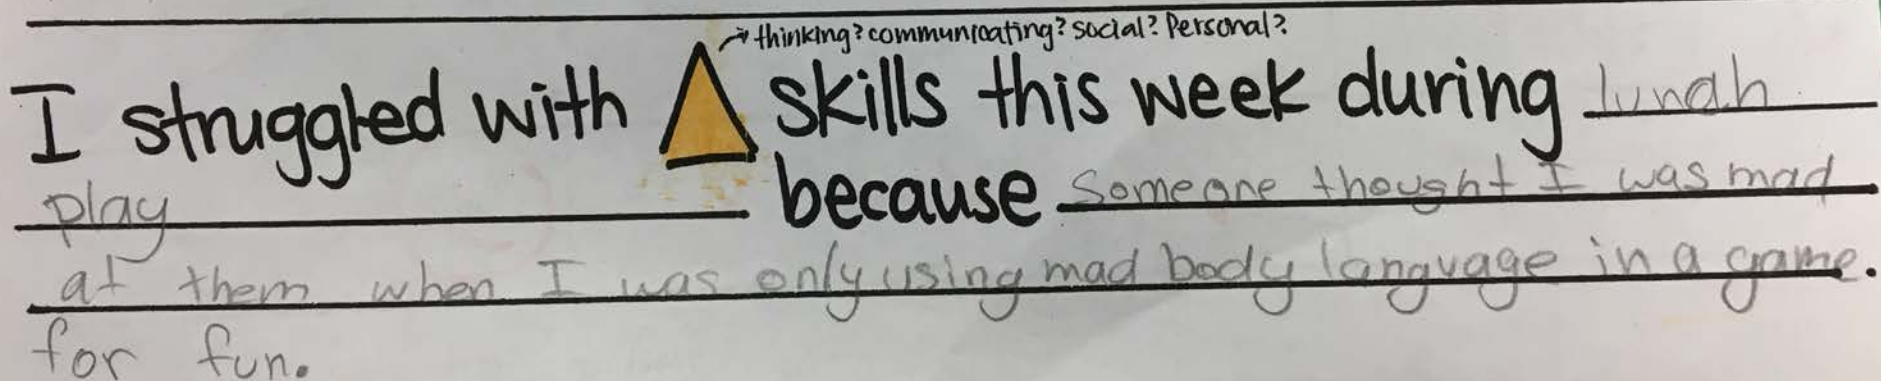 thinking? communicating? social? Personal?
I struggled with skills this week during lunah
play because Someone thought I was mad
at them when I was only using mad body language in a game.
for fun.